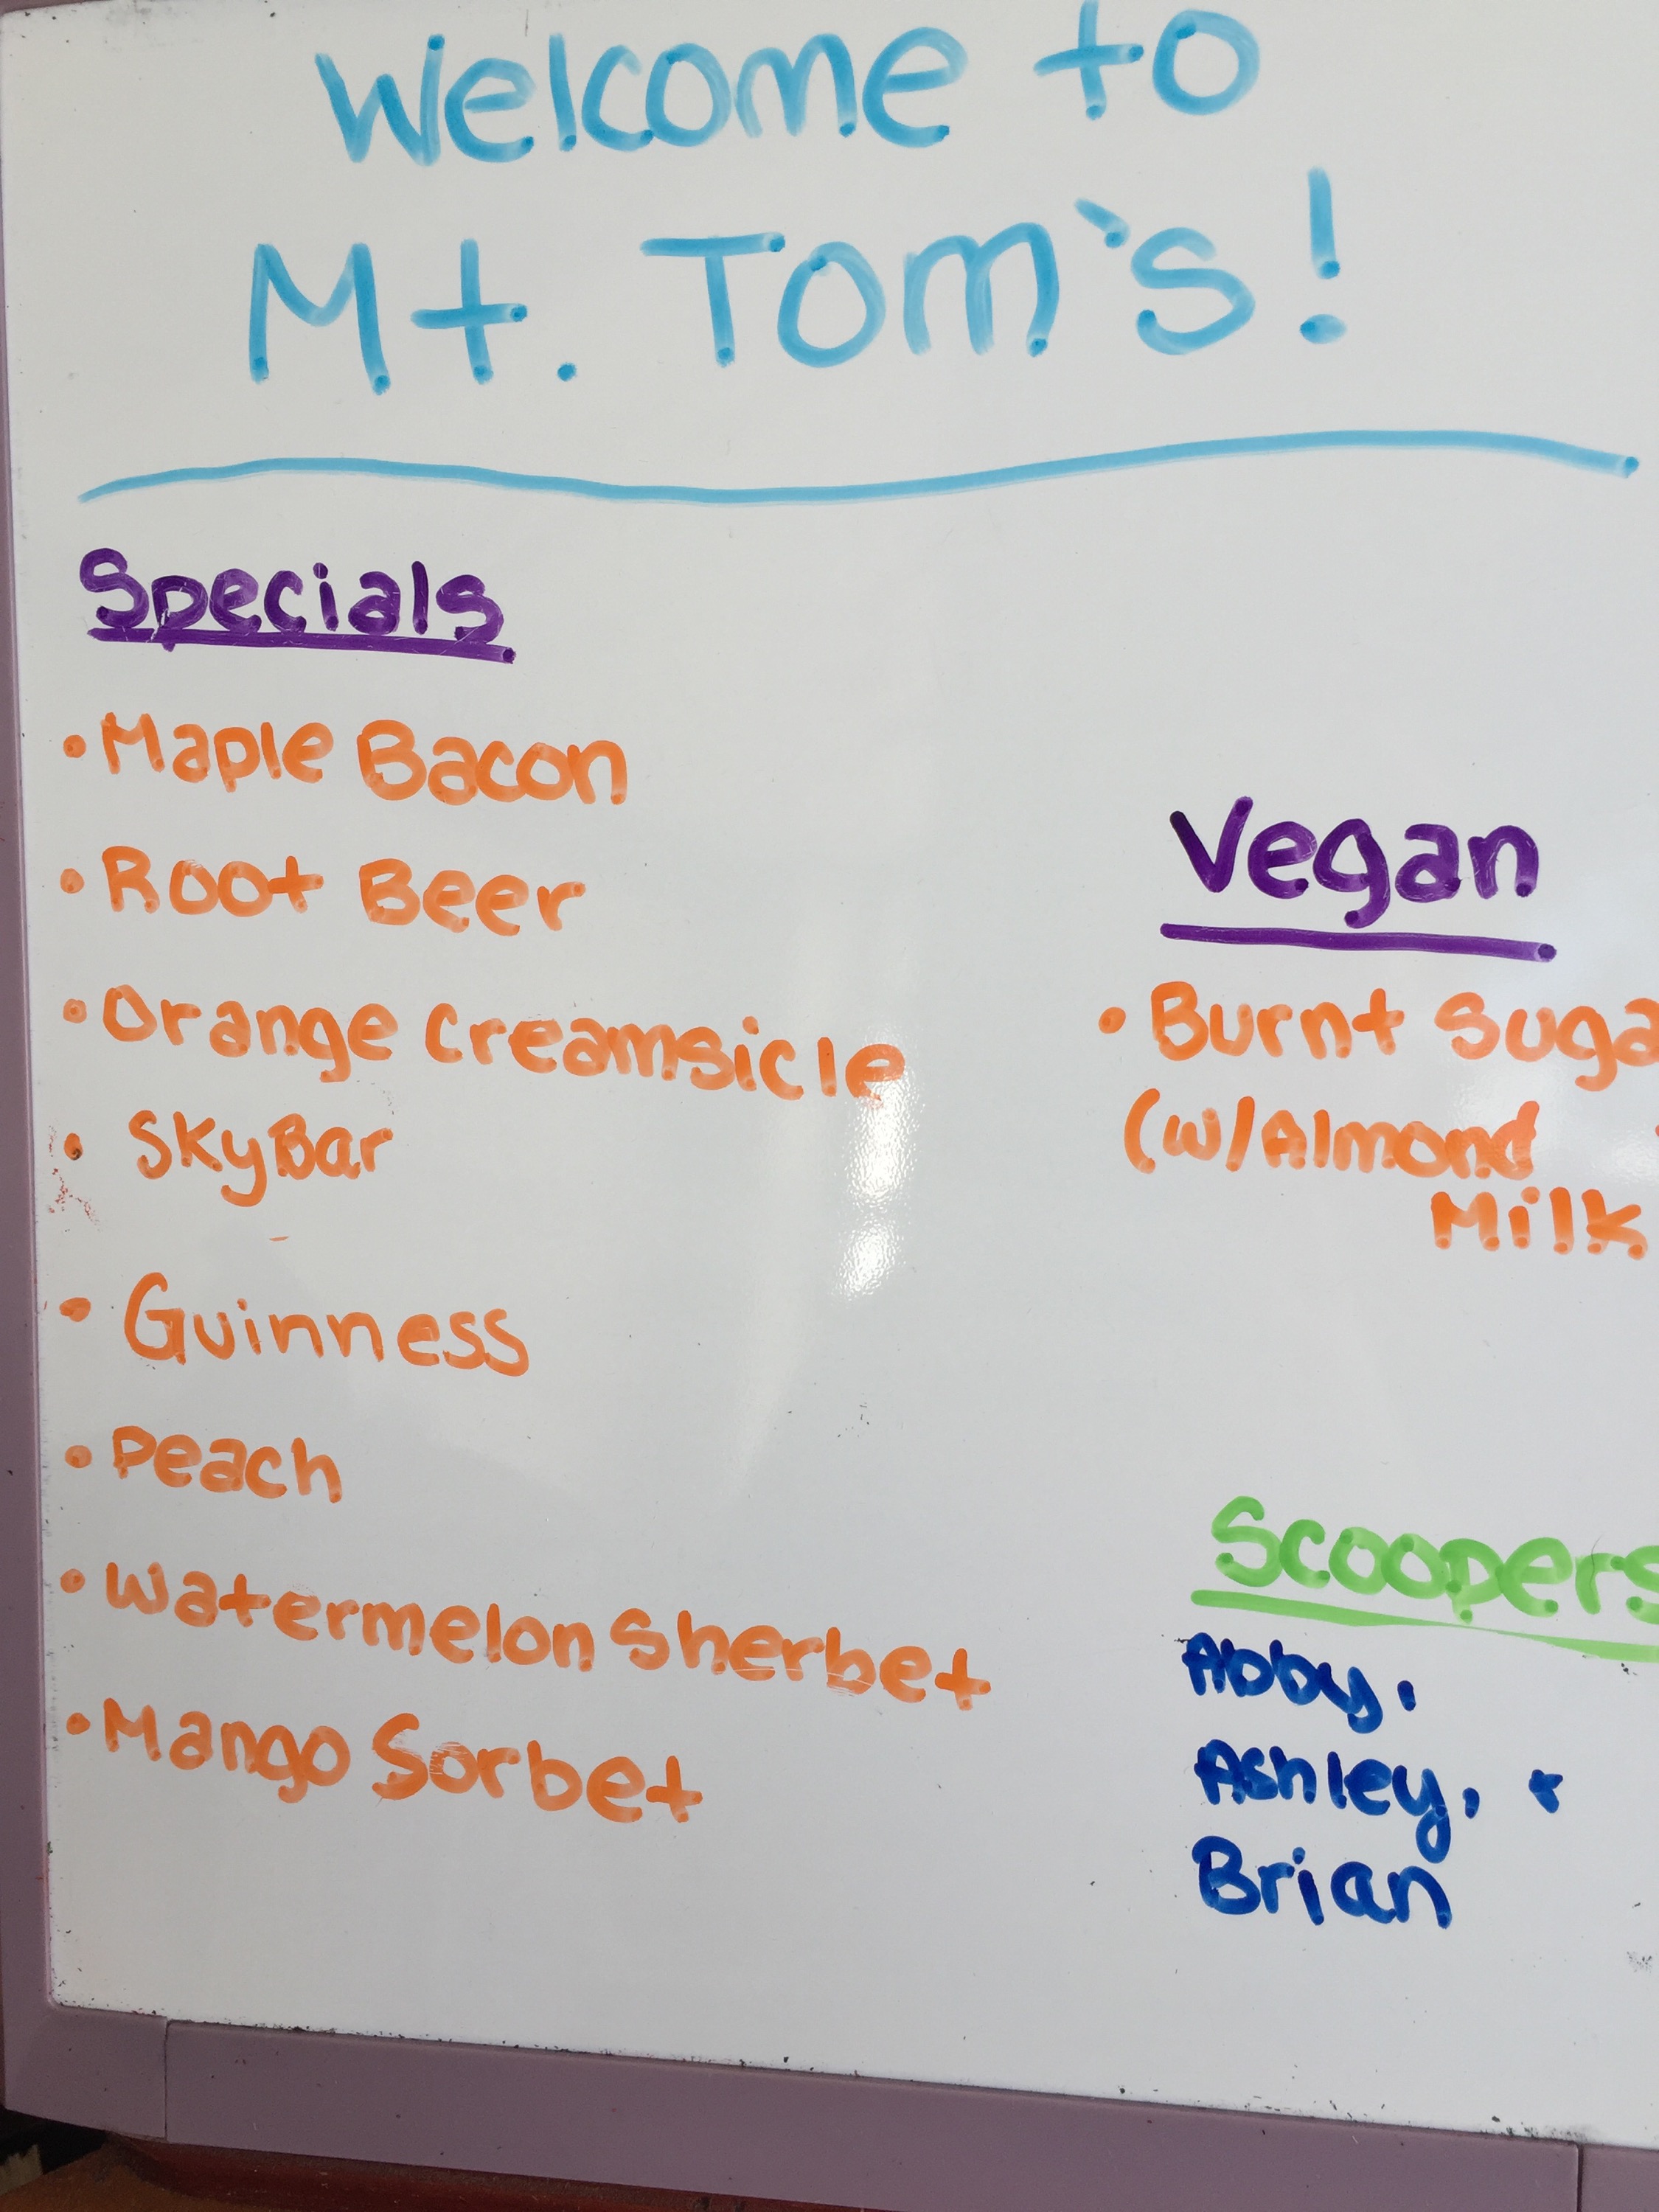 Welcome to
Mt. Tom's!
Specials
• Maple Bacon
• Root Beer
• Orange Creamsicle
• SkyBar
• Guinness
• Peach
• Watermelon Sherbet
• Mango Sorbet
Vegan
• Burnt Suga
(w/Almond
Milk
Scoopers
Abby,
Ashley, +
Brian